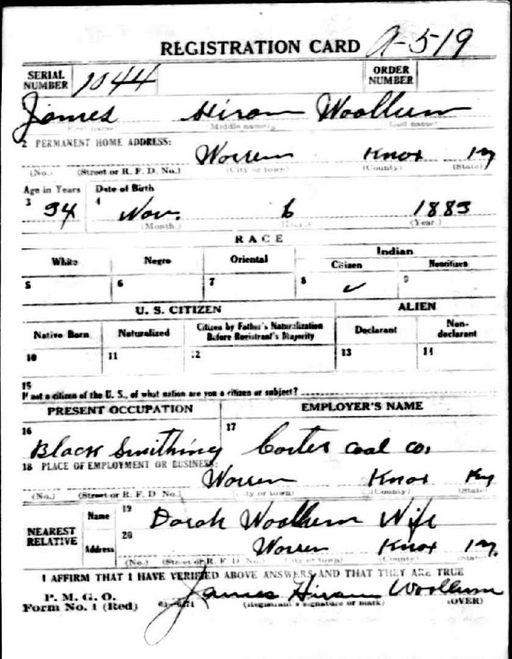 REGISTRATION CARD A-519
SERIAL NUMBER 1044 ORDER NUMBER
James Hiram Woollum
(First name) (Middle name) (Last name)
2 PERMANENT HOME ADDRESS:
Warren Knox Ky
(No.) (Street or R. F. D. No.) (City or town) (County) (State)
Age in Years Date of Birth
3 34 4 Nov. 6 1883
(Month.) (Year.)
RACE
White Negro Oriental Indian
Citizen Noncitizen
5 6 7 8 ✓ 9
U. S. CITIZEN ALIEN
Native Born Naturalized Citizen by Father's Naturalization Before Registrant's Majority Declarant Non-declarant
10 11 12 13 14
15
If not a citizen of the U. S., of what nation are you a citizen or subject?
PRESENT OCCUPATION EMPLOYER'S NAME
16 17
Black Smithing Coal Co.
18 PLACE OF EMPLOYMENT OR BUSINESS:
Warren Knox Ky
(No.) (Street or R. F. D. No.) (City or town) (County) (State)
NEAREST RELATIVE
Name 19 Woollum Wife
Address 20 Warren Knox Ky.
(No.) (Street or R. F. D. No.) (City or town) (County) (State)
I AFFIRM THAT I HAVE VERIFIED ABOVE ANSWERS AND THAT THEY ARE TRUE
P. M. G. O.
Form No. 1 (Red) James Hiram Woollum
(Registrant's signature or mark) (OVER)